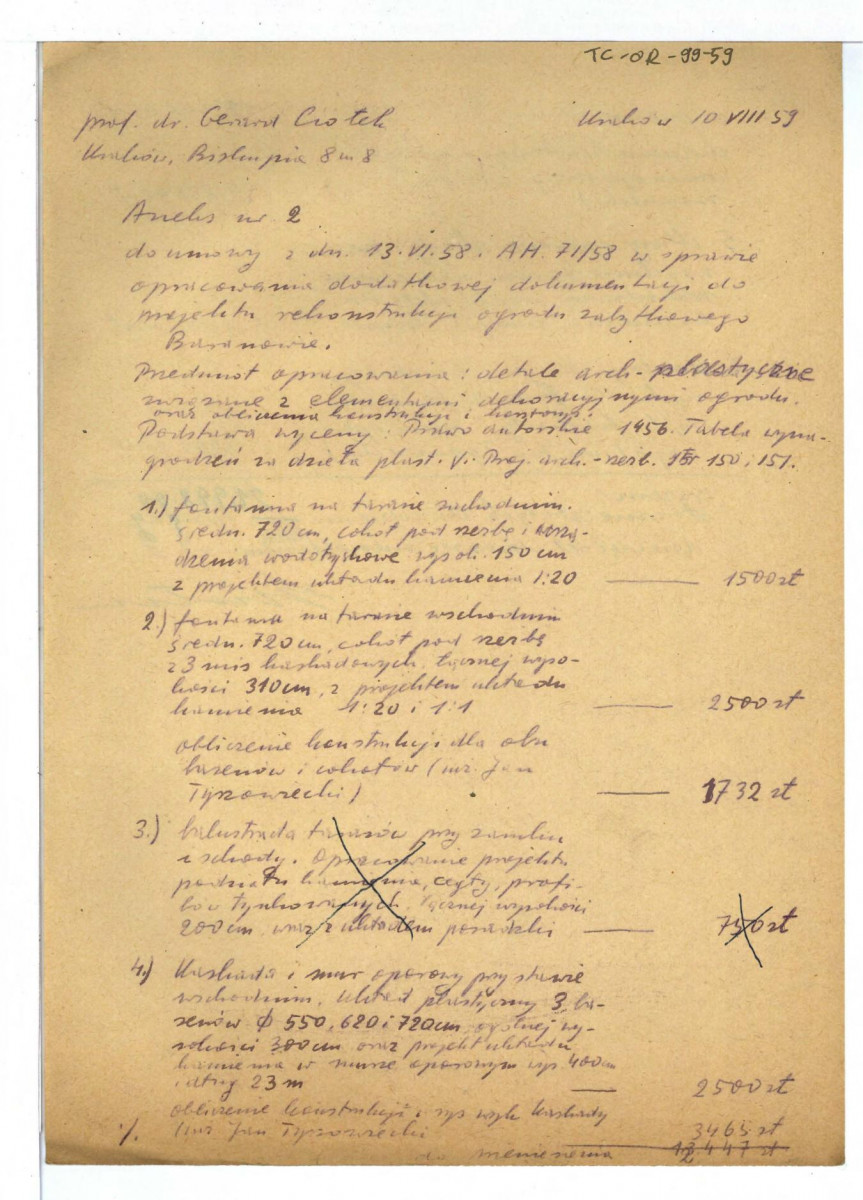 TC-OR-99-59
prof. dr. Gerard Ciołek
Kraków 10 VIII 59
Kraków, Biskupia 8 m 8
Aneks nr 2
do umowy z dn. 13.VI.58. AH. 71/58 w sprawie
opracowania dodatkowej dokumentacji do
projektu rekonstrukcji ogrodu zabytkowego
Baranowie.
Przedmiot opracowania: detale arch.-plastyczne
związane z elementami dekoracyjnymi ogrodu.
oraz obliczenia konstrukcji i
Podstawa wyceny: Prawo autorskie 1456. Tabela wyna-
grodzeń za dzieła plast. V. Proj. arch.-rzeźb. 150 i 151.
1.) fontanna na tarasie zachodnim.
średn. 720 cm, cokół pod rzeźbę i urzą-
dzenia wodotryskowe wysok. 150 cm
z projektem układu kamienia 1:20 — 1500 zł
2.) fontanna na tarasie wschodnim
średn. 720 cm, cokół pod rzeźbę
z 3 mis kaskadowych, łącznej wyso-
kości 310 cm, z projektem układu
kamienia 1:20 i 1:1 — 2500 zł
obliczenie konstrukcji dla obu
basenów i cokołów (inż. Jan
Tyszowiecki) — 1732 zł
3.) balustrada tarasów przy zamku
i schody. Opracowanie projektu
podziału kamienia, cegły, profi-
lów tynkowanych, łącznej wysokości
200 cm, wraz z układem posadzki — 750 zł
4.) Kaskada i mur oporowy przy stawie
wschodnim. Układ plastyczny 3 ba-
senów ϕ 550, 620 i 720 cm, ogólnej wy-
sokości 300 cm oraz projekt układu
kamienia w murze oporowym wys. 400 cm
i dług. 23 m — 2500 zł
obliczenie konstrukcji i rys wyk kaskady
(inż Jan Tyszowiecki 3465 zł
./. do przeniesienia 12 447 zł